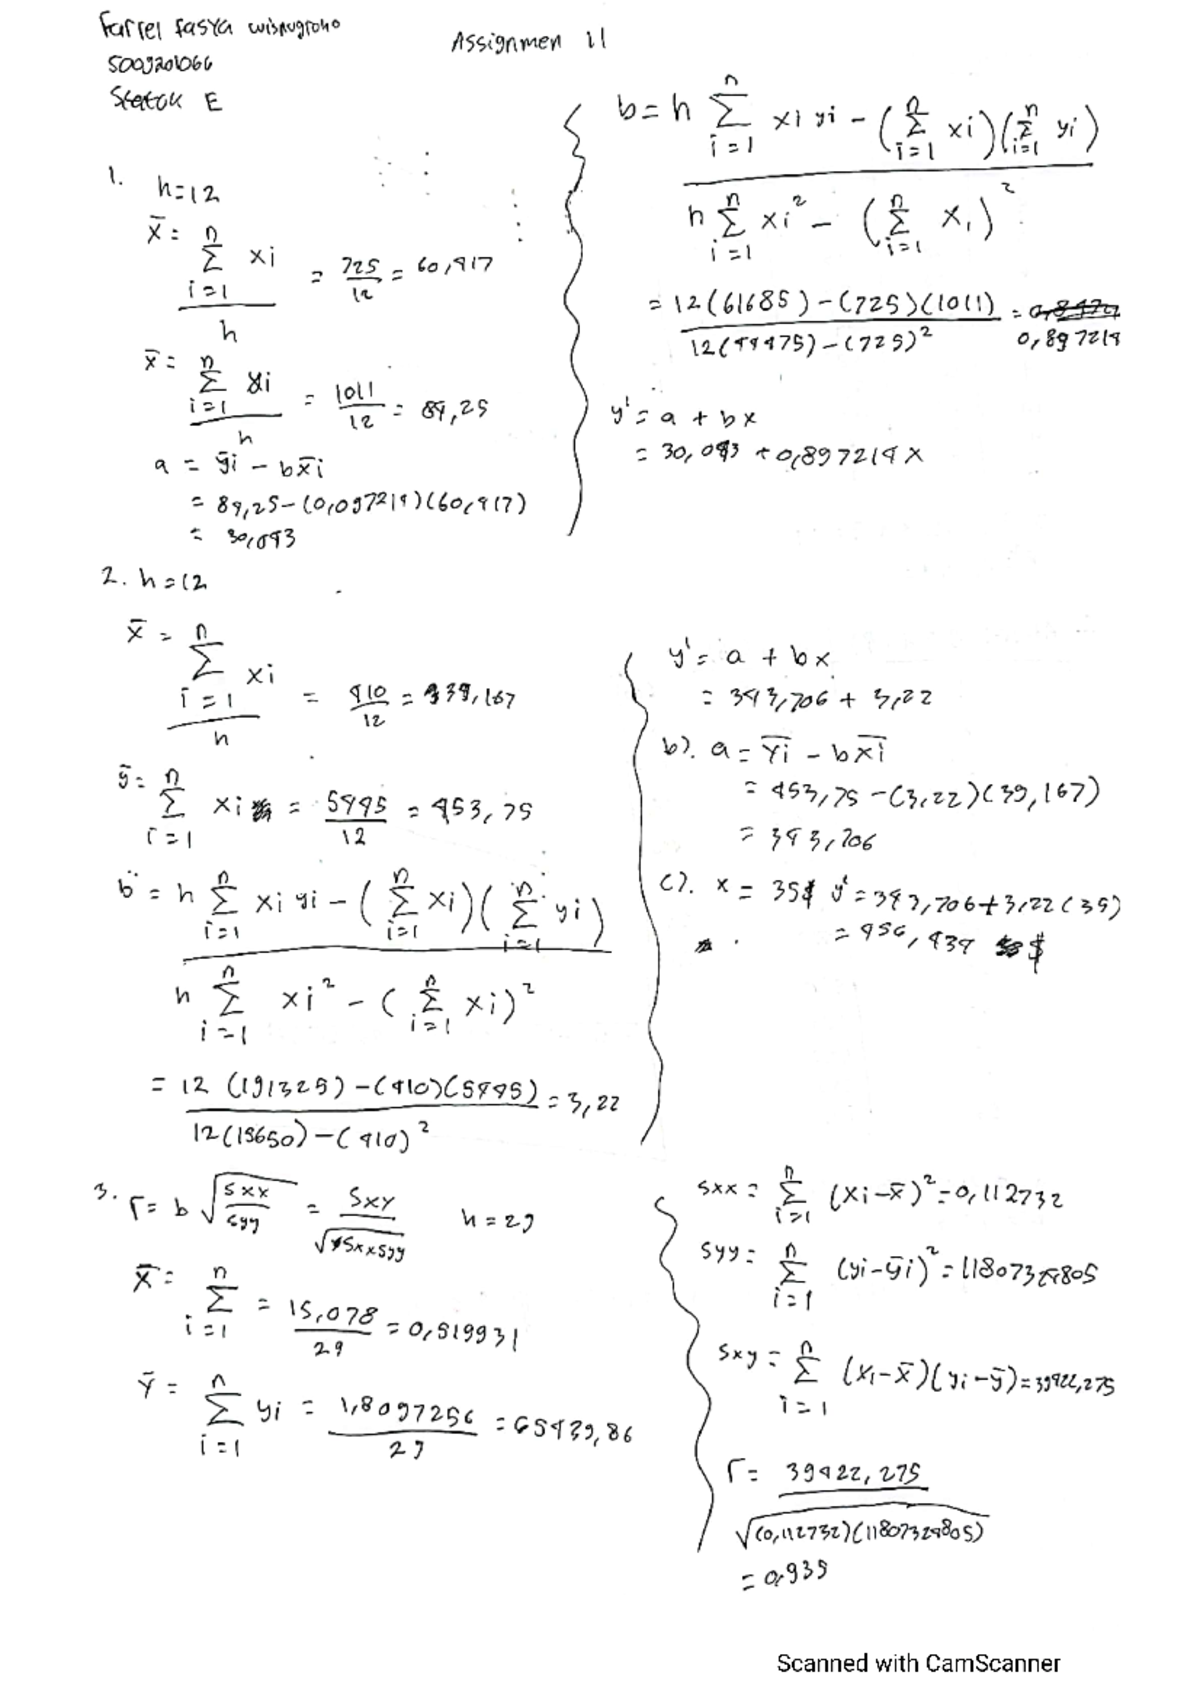 Farrel fasya wisnugroho
Assignmen 11
5009201066
Statok E
1. n=12
x̄ = Σ(i=1, n) xi / n = 725/12 = 60,417
x̄ = Σ(i=1, n) yi / n = 1011/12 = 84,25
a = ȳi - bx̄i
= 84,25-(0,897214)(60,417)
= 30,043
b = n Σ(i=1, n) xi yi - (Σ(i=1, n) xi)(Σ(i=1, n) yi) / n Σ(i=1, n) xi² - (Σ(i=1, n) xi)²
= 12(61685)-(725)(1011) / 12(44475)-(725)² = 0,897214
y' = a + bx
= 30,043 + 0,897214x
2. n=12
x̄ = Σ(i=1, n) xi / n = 410/12 = 39,167
ȳ = Σ(i=1, n) xi = 5445/12 = 453,75
b = n Σ(i=1, n) xi yi - (Σ(i=1, n) xi)(Σ(i=1, n) yi) / n Σ(i=1, n) xi² - (Σ(i=1, n) xi)²
= 12(191325)-(410)(5445) / 12(15650)-(410)² = 3,22
y' = a + bx
= 343,706 + 3,22
b). a = ȳi - bx̄i
= 453,75-(3,22)(39,167)
= 343,706
c). x = 35$ y' = 343,706+3,22(35)
= 456,434 $
3. r = b √(sxx/syy) = sxy/√(sxxsyy) n = 29
x̄ = Σ(i=1, n) = 15,078/29 = 0,519931
ȳ = Σ(i=1, n) yi = 1,8097256/29 = 65439,86
sxx = Σ(i=1, n) (xi-x̄)² = 0,112732
syy = Σ(i=1, n) (yi-ȳi)² = 11807324805
sxy = Σ(i=1, n) (xi-x̄)(yi-ȳ) = 39422,275
r = 39422,275 / √((0,112732)(11807324805))
= 0,935
Scanned with CamScanner